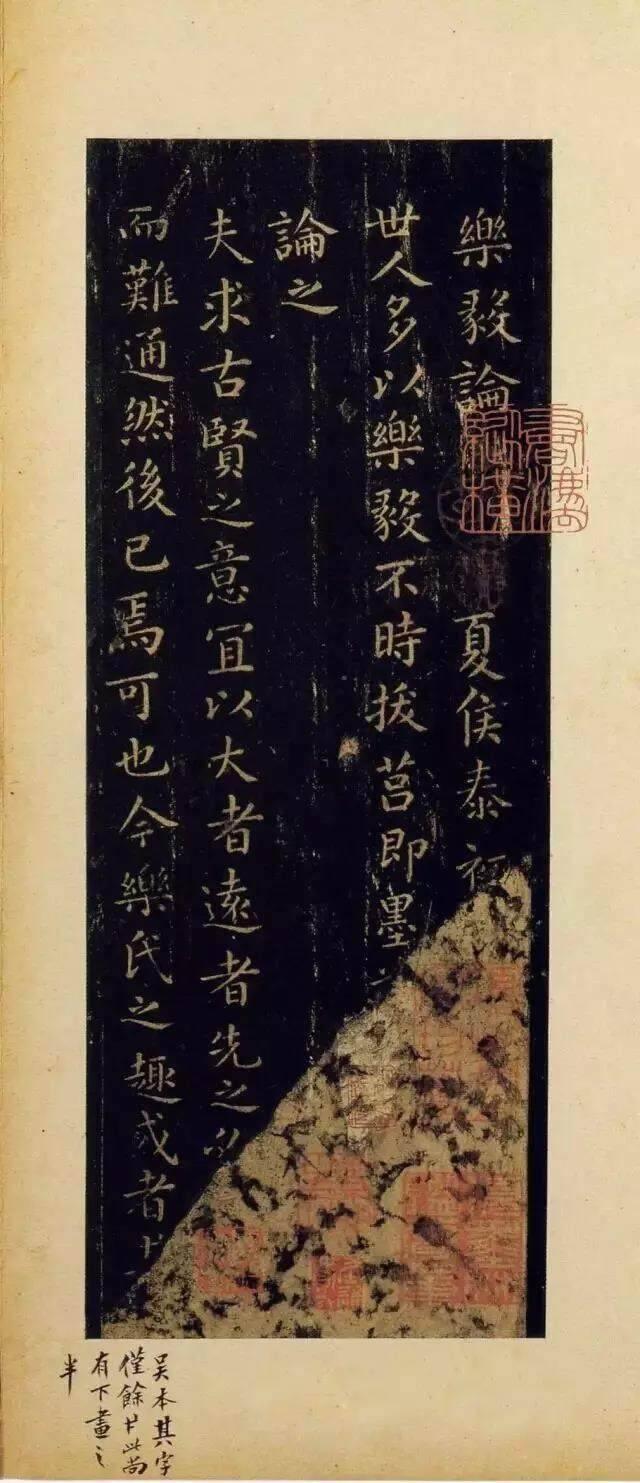 樂毅論 夏侯泰初
世人多以樂毅不時拔莒即墨
論之
夫求古賢之意宜以大者遠者先之必
而難通然後已焉可也今樂氏之趣或者
吴本其字
僅餘 此尚
有下畫之
半